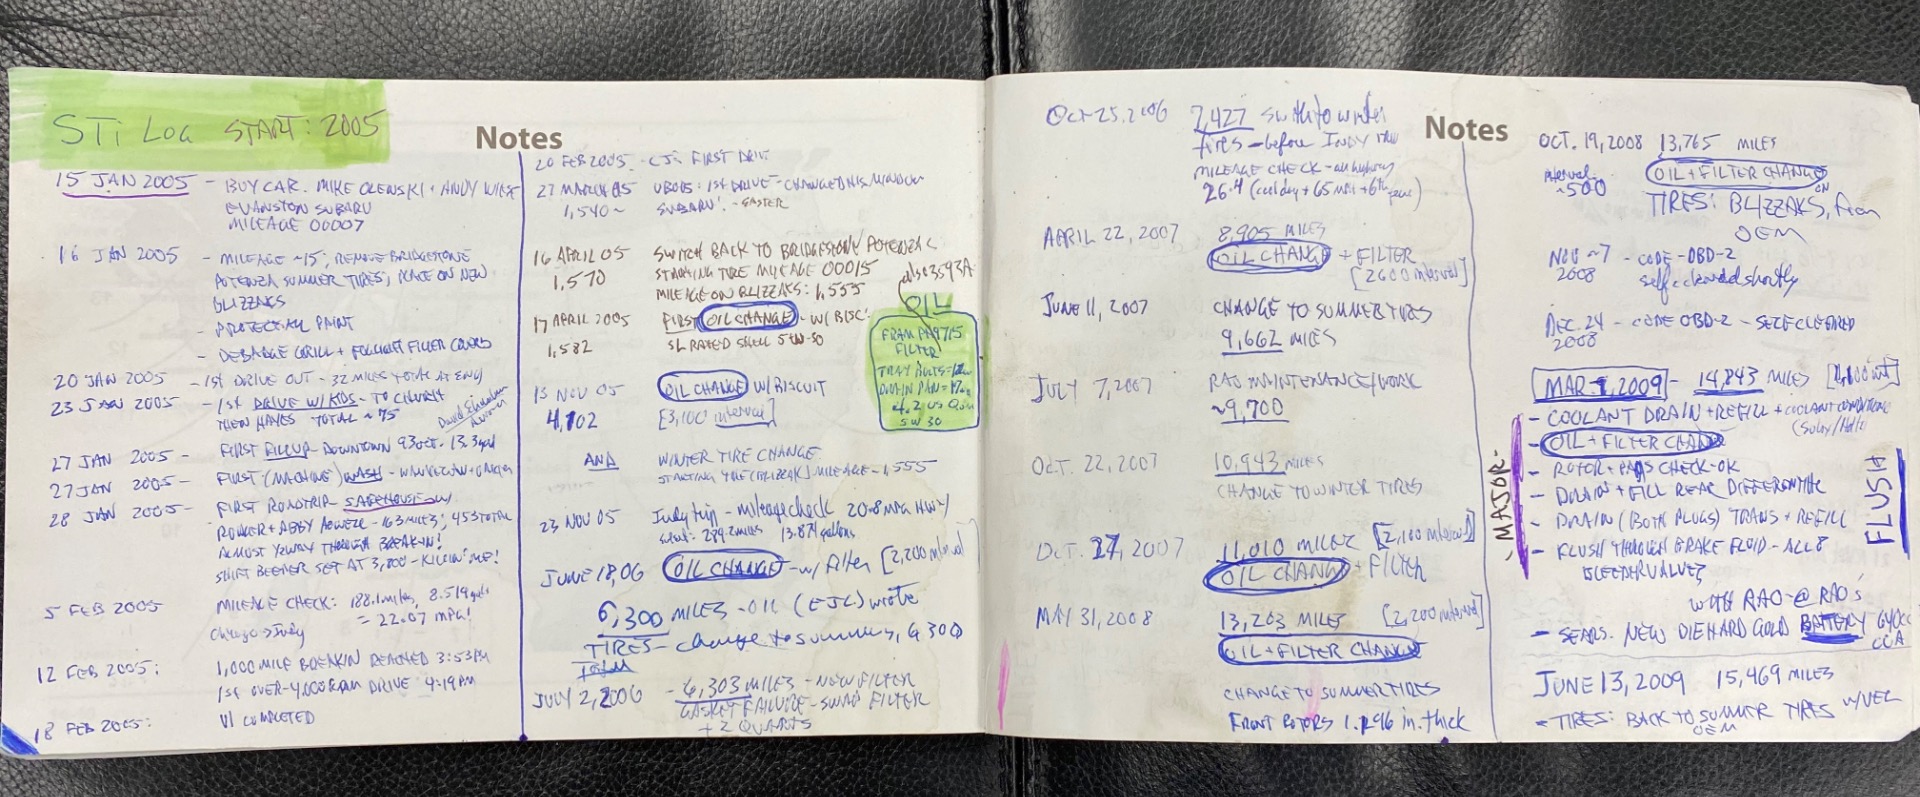 STi LOG START: 2005
Notes
15 JAN 2005 - BUY CAR. MIKE OLENSKI + ANDY
EVANSTON SUBARU
MILEAGE 00007
16 JAN 2005 - MILEAGE ~15; REMOVE BRIDGESTONE
POTENZA SUMMER TIRES; PLACE ON NEW
BLIZZAKS
- PROTECTALL PAINT
- DEBADGE GRILL + FOGLIGHT FILLER COVERS
20 JAN 2005 - 1ST DRIVE OUT - 32 MILES TOTAL AT END
23 JAN 2005 - 1st DRIVE W/ KIDS - TO CHURCH
THEN HAYES TOTAL ~75
27 JAN 2005 - FIRST FILLUP - DOWNTOWN 93 OCT - 13.3 gal
27 JAN 2005 - FIRST (MACHINE) WASH -
28 JAN 2005 - FIRST ROADTRIP - SAFEHOUSE
+ ABBY - 163 MILES; 453 TOTAL
ALMOST 1/2 WAY THROUGH BREAKIN!
SHIFT BEEPER SET AT 3,800 - KILLIN' ME!
5 FEB 2005 MILEAGE CHECK: 188.1 miles, 8.519 gals
Chicago > Indy = 22.07 mpg!
12 FEB 2005: 1,000 MILE BREAKIN REACHED 3:53 PM
1st OVER-4,000 RPM DRIVE 4:19 PM
18 FEB 2005: COMPLETED
20 FEB 2005 - CJ: FIRST DRIVE
27 MARCH 05 1ST DRIVE -
1,540 ~ SUBARU! - EASTER
16 APRIL 05 SWITCH BACK TO BRIDGESTONE POTENZAS
1,570 STARTING TIRE MILEAGE 00015
MILEAGE ON BLIZZAKS: 1,555
17 APRIL 2005 FIRST OIL CHANGE - W/ BISC.
1,582 SL RATED SHELL 5W-30
also 3593A
OIL
FRAM PH9715
FILTER
TRAY BOLTS = 12mm
DRAIN PAN = 17mm
4.2 US Quarts
5W30
13 NOV 05 OIL CHANGE W/ BISCUIT
4,702 [3,100 interval]
AND WINTER TIRE CHANGE
STARTING TIRE (BLIZZAK) MILEAGE - 1,555
23 NOV 05 Indy trip - mileage check 20.8 MPG HWY/
289.2 miles 13.874 gallons
JUNE 18, 06 OIL CHANGE - w/ filter [2,200 interval]
6,300 MILES - OIL (EJC) wrote
TIRES - change to summer, 6,300
JULY 2, 2006 - 6,303 MILES - NEW FILTER
GASKET FAILURE - SWAP FILTER
+ 2 QUARTS
Notes
Oct 25, 2006 7,427 switch to winter
tires - before INDY
MILEAGE CHECK - all highway
26.4 (cool day + 65 MPH + 6th gear)
APRIL 22, 2007 8,905 MILES
OIL CHANGE + FILTER
[2600 interval]
JUNE 11, 2007 CHANGE TO SUMMER TIRES
9,662 MILES
JULY 7, 2007 RAO MAINTENANCE/WORK
~9,700
OCT. 22, 2007 10,943 MILES
CHANGE TO WINTER TIRES
OCT. 27, 2007 11,010 MILES [2,100 interval]
OIL CHANGE + FILTER
MAY 31, 2008 13,203 MILES [2,200 interval]
OIL + FILTER CHANGE
CHANGE TO SUMMER TIRES
FRONT ROTORS in. thick
OCT. 19, 2008 13,765 MILES
interval ~500 OIL + FILTER CHANGE
TIRES: BLIZZAKS ON, from
OEM
NOV ~7 2008 - CODE - OBD-2
self-cleared shortly
DEC. 24 2008 - CODE OBD-2 - SELF CLEARED
MAR. 1, 2009 - 14,843 MILES
- MAJOR -
- COOLANT DRAIN + REFILL + COOLANT CONDITIONER
- OIL + FILTER CHANGE
- ROTOR + PADS CHECK - OK
- DRAIN + FILL REAR DIFFERENTIAL
- DRAIN (BOTH PLUGS) TRANS + REFILL
- FLUSH THROUGH BRAKE FLUID - ALL 8
BLEEDER VALVES
FLUSH
WITH RAO @ RAO'S
- SEARS. NEW DIEHARD GOLD BATTERY
CCA
JUNE 13, 2009 15,469 MILES
- TIRES: BACK TO SUMMER TIRES
OEM